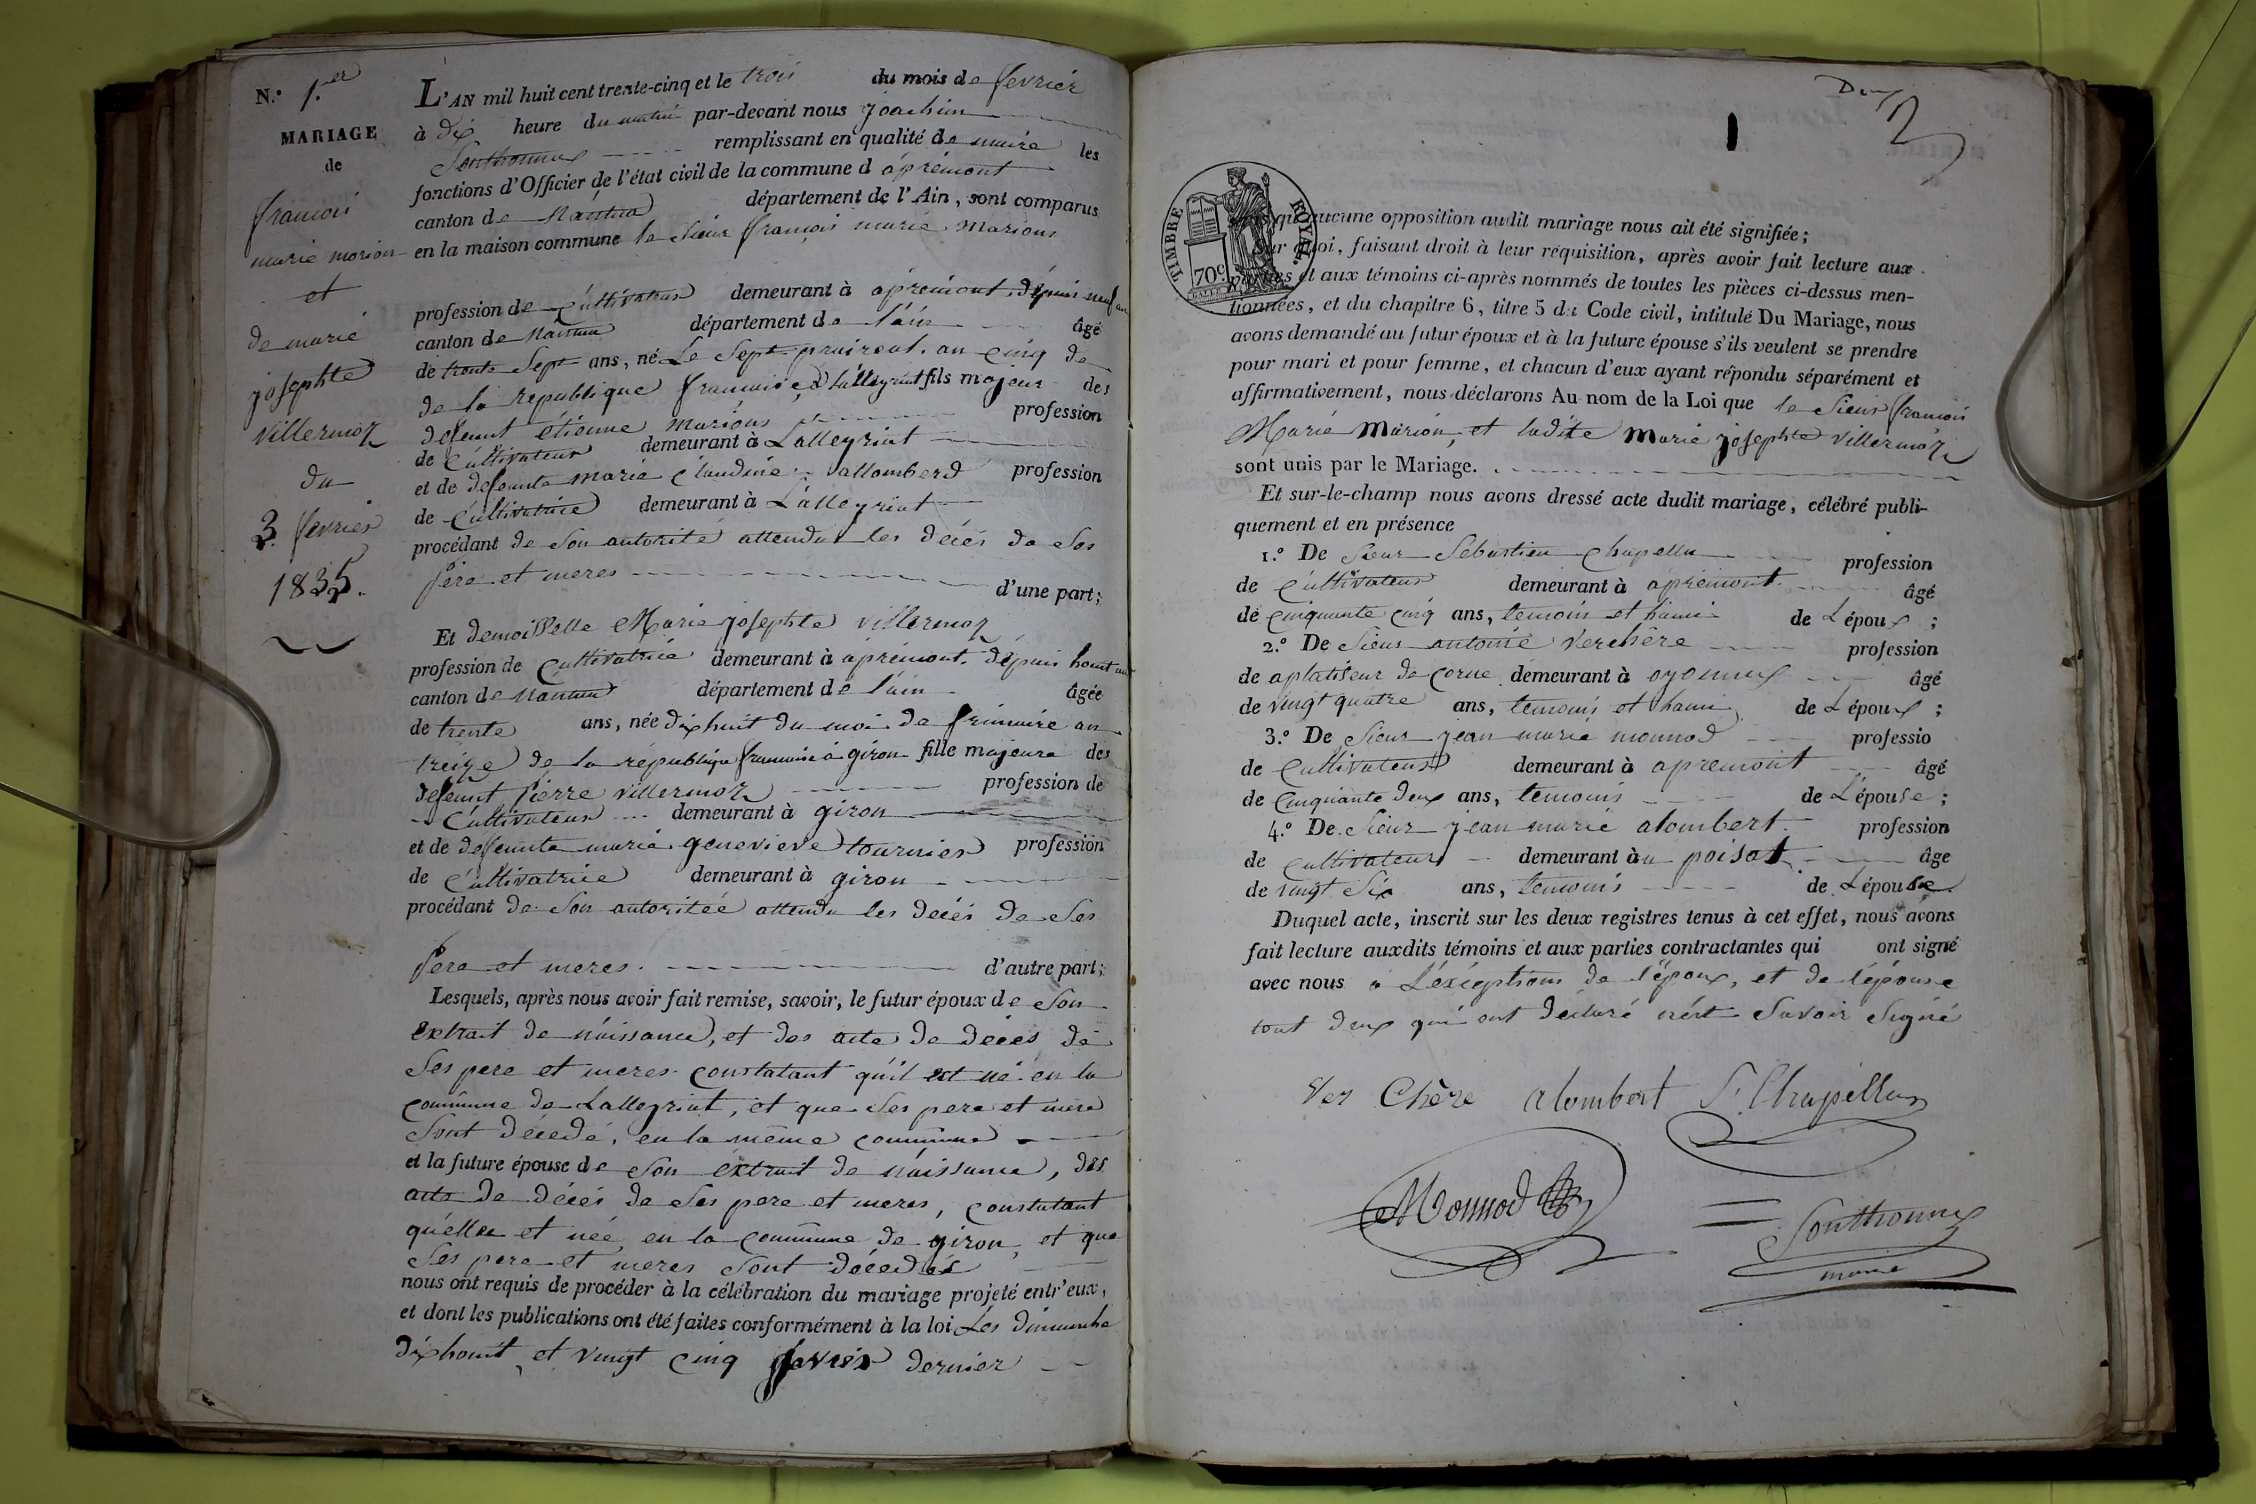 N.º 1.er
MARIAGE
de
francois
marie morion
et
de marie
josephte
villermoz
du
3. fevrier
1835.
L'AN mil huit cent trente-cinq et le trois du mois de fevrier
à dix heure du matin par-devant nous joachim
Sonthonnax remplissant en qualité de maire les
fonctions d'Officier de l'état civil de la commune d áprémont
canton de Nantua département de l'Ain, sont comparus
en la maison commune le Sieur françois marie Marions
profession de Cultivateur demeurant à apremont, dépuis neuf an
canton de Nantua département de l'áin âgé
de trente Sept ans, né Le Sept prairéal. an Cinq de
de la republique francaise, à Lalleyriat fils majeur des
defeunt étienne marions et profession
de Cultivateur demeurant à Lalleyriat
et de defeunte marie Claudine vallomberd profession
de Cultivatrice demeurant à Lalleyriat
procédant de Son autorité attendu les décés de Ses
pére et meres d'une part;
Et demoiselle Marie josephte villermoz
profession de Cultivatrice demeurant à áprémont. dépuis houit an
canton de Nantua département de l'ain âgée
de trente ans, née dix huit du moi de frimaire an
treize de la république francaise à giron fille majeure des
defeunt pierre villermoz profession de
Cultivateur demeurant à giron
et de defeunte marie genevieve tournier profession
de Cultivatrice demeurant à giron
procédant de Son autoritée attendu les décés de Ses
pere et meres. d'autre part;
Lesquels, après nous avoir fait remise, savoir, le futur époux de Son
extrait de náissance, et des acte de décés de
Ses pere et meres constatant qu'il est né en la
commune de Lalleyriat, et que Ses pere et mere
Sont décedé, en la même commune
et la future épouse de Son éxtrait de náissance, des
acte de décés de Ses pere et meres, constatant
qu'elle et née en la commune de giron, et que
Ses pere et meres Sont décedés
nous ont requis de procéder à la célébration du mariage projeté entr'eux,
et dont les publications ont été faites conformément à la loi Les dimanche
dixhouit et vingt cinq dernier
2
1
TIMBRE ROYAL
70c
qu'aucune opposition audit mariage nous ait été signifiée;
Sur quoi, faisant droit à leur réquisition, après avoir fait lecture aux
parties et aux témoins ci-après nommés de toutes les pièces ci-dessus men-
tionnées, et du chapitre 6, titre 5 du Code civil, intitulé Du Mariage, nous
avons demandé au futur époux et à la future épouse s'ils veulent se prendre
pour mari et pour femme, et chacun d'eux ayant répondu séparément et
affirmativement, nous déclarons Au nom de la Loi que le Sieur francois
Marie Marion, et ladite Marie josephte villermoz
sont unis par le Mariage.
Et sur-le-champ nous avons dressé acte dudit mariage, célébré publi-
quement et en présence
1.º De Sieur Sebastien Chapellu profession
de Cultivateur demeurant à apremont. âgé
de cinquante cinq ans, temoin et hami de L'époux ;
2.º De Sieur antoine verchére profession
de aplatiseur de corne demeurant à oyonnax âgé
de vingt quatre ans, temoins et hami de L'époux ;
3.º De Sieur jean marie monnod professio
de Cultivateur demeurant à apremont âgé
de Cinquiante deux ans, temoins de L'épouse ;
4.º De Sieur jean marie alombert. profession
de cultivateur demeurant àu poisat âge
de vingt Six ans, temoins de L'épouse.
Duquel acte, inscrit sur les deux registres tenus à cet effet, nous avons
fait lecture auxdits témoins et aux parties contractantes qui ont signé
avec nous à L'éxéptions de l'époux, et de lépouse
tout deux qui ont déclaré Savoir Signé
Ver Chère alombert S. Chapellu
Monnod
Sonthonnax
maire